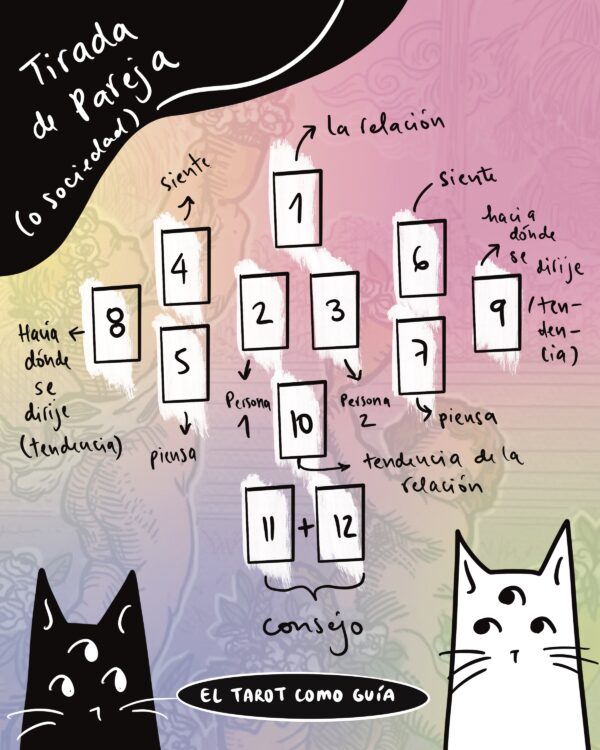 Tirada
de Pareja
(o sociedad)
1
la relación
4
siente
6
siente
2
3
8
Hacia
dónde
se
dirije
(tendencia)
9
hacia
dónde
se
dirije
/ten-
den-
cia)
5
piensa
7
piensa
Persona
1
Persona
2
10
tendencia de la
relación
11 + 12
consejo
EL TAROT COMO GUÍA